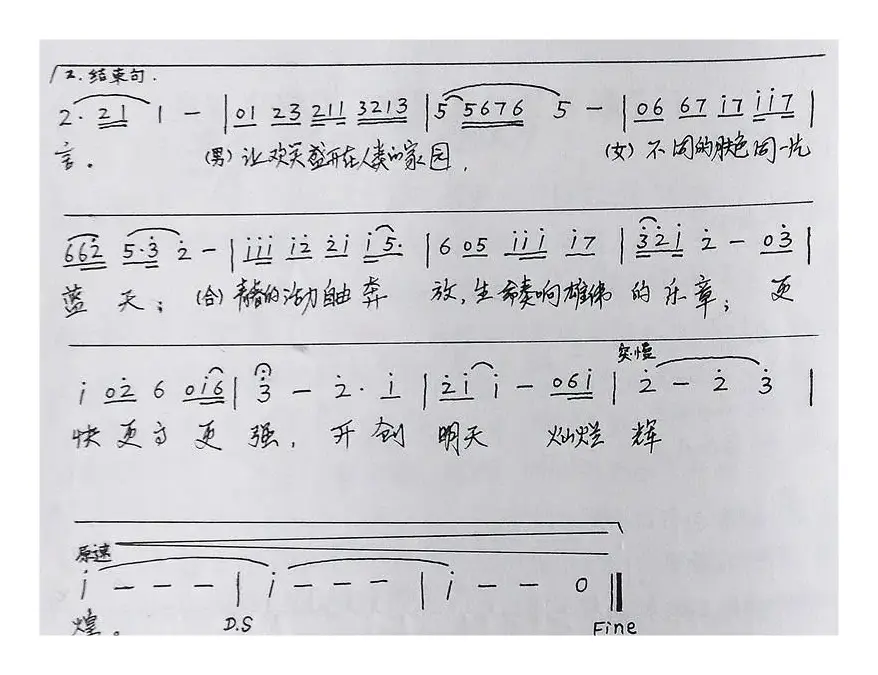 2. 结束句.
2· 2 1 1 – | 01 23 211 3213 | 5 5676 5 – | 06 67 i7 ii7 |
言。 (男) 让欢笑盛开在人类的家园, (女) 不同的肤色同一片
662̇ 5·3̇ 2̇ – | iii i2̇ 2̇i i5· | 6 05 iii i7 | 3̇2̇i 2̇ – 03̇ |
蓝天; (合) 青春的活力自由奔放, 生命奏响雄伟的乐章; 更
i 02̇ 6 0i6 | 3̇ – 2̇· i | 2̇i i – 06i | 2̇ – 2̇ 3̇ |
突慢
快更高更强, 开创明天 灿烂辉
原速
i – – – | i – – – | i – – 0 ‖
煌。 D.S Fine